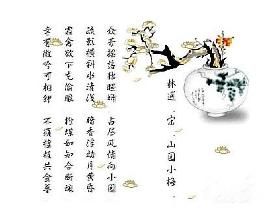 林逋·宋·山园小梅·
众芳摇落独暄妍 占尽风情向小园
疏影横斜水清浅 暗香浮动月黄昏
霜禽欲下先偷眼 粉蝶如知合断魂
幸有微吟可相狎 不须檀板共金尊